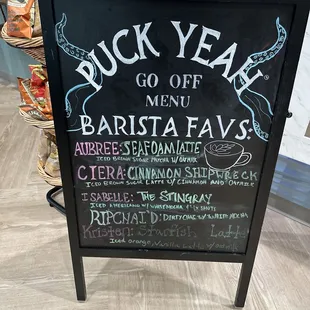 PUCK YEAH
GO OFF
MENU
BARISTA FAVS:
AUBREE: SEAFOAM LATTE
ICED BROWN SUGAR MOCHA W/
CIERA: CINNAMON SHIPWRECK
ICED BROWN SUGAR LATTE W/ CINNAMON AND OATMILK
ISABELLE: THE STINGRAY
ICED AMERICANO W/
RIPCHAI'D: DIRTY CHAI W/ WHITE MOCHA
Kristen: Starfish Latte
Iced Orange Mocha Latte W/